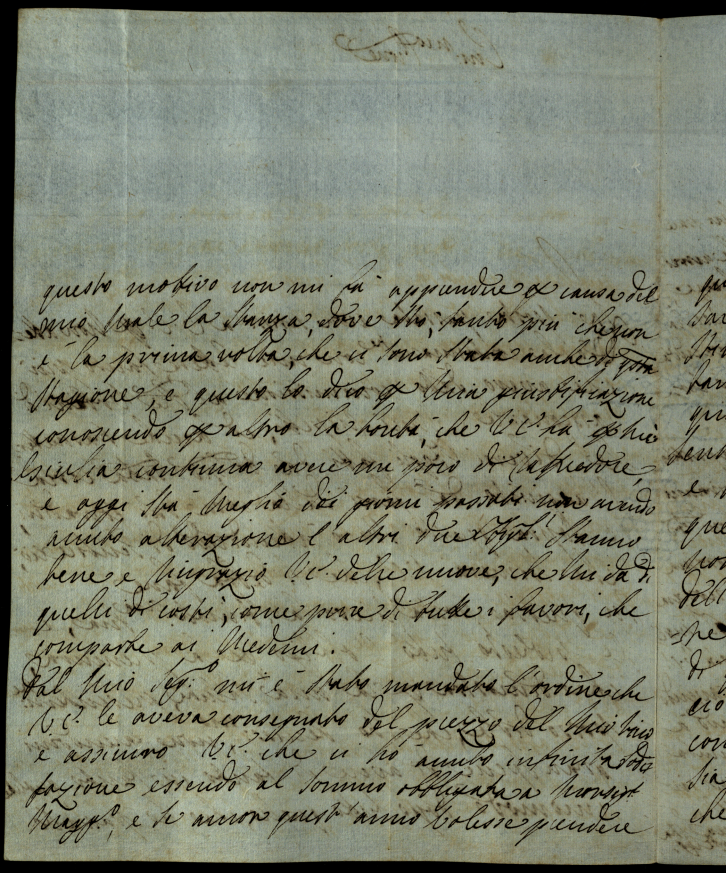 questo motivo non mi fà apprendere p causa del
mio Male la Stanza, dove Stò, tanto più che non
è la prima volta, che ci sono Stata anche di qsta
Stagione, e questo lo dico p Mia giustificazione
conoscendo p altro la bontà, che VE ha p Me
continua avere un poco di Rafredore,
e oggi Stà Meglio dei giorni passati non avendo
avuto alterazione l'altri due Stanno
bene e Ringrazio VE delle nuove, che Mi da di
quelli di costì, come pure di tutte i favori, che
comparte ai Medemi.
Dal Mio Sigr. mi è Stato mandato l'ordine che
VE. le aveva consegnato del prezzo del Mio
e assicuro VE. che ci hò avuto infinita sodis
fazione essendo al Sommo obbligata a Monsigr
Magg.o, e Se ancor quest'anno Volesse prendere